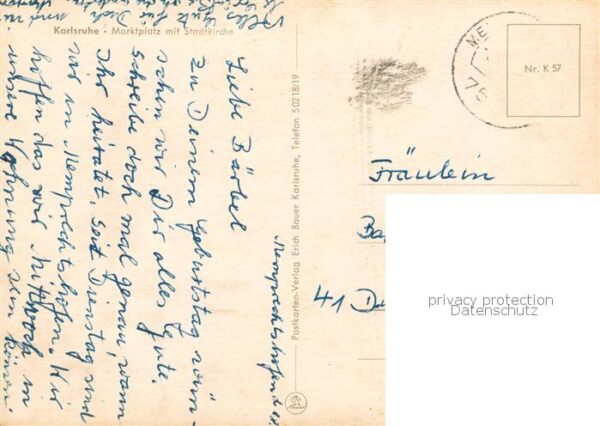 Karlsruhe · Marktplatz mit Stadtkirche
Memprechtshofen d.
Liebe Bärbel
zu Deinem Geburtstag wün-
schen wir Dir alles Gute.
schreibe doch mal genau, wann
Ihr heiratet. Seit Dienstag sind
wir in Memprechtshofen. Wir
hoffen das wir Mittwoch in
unsere Wohnung rein können.
Alles Gute für Dich
Postkarten-Verlag Erich Bauer Karlsruhe, Telefon 50218/19
ME
Nr. K 57
Fräulein
Ba
41 Du
privacy protection
Datenschutz